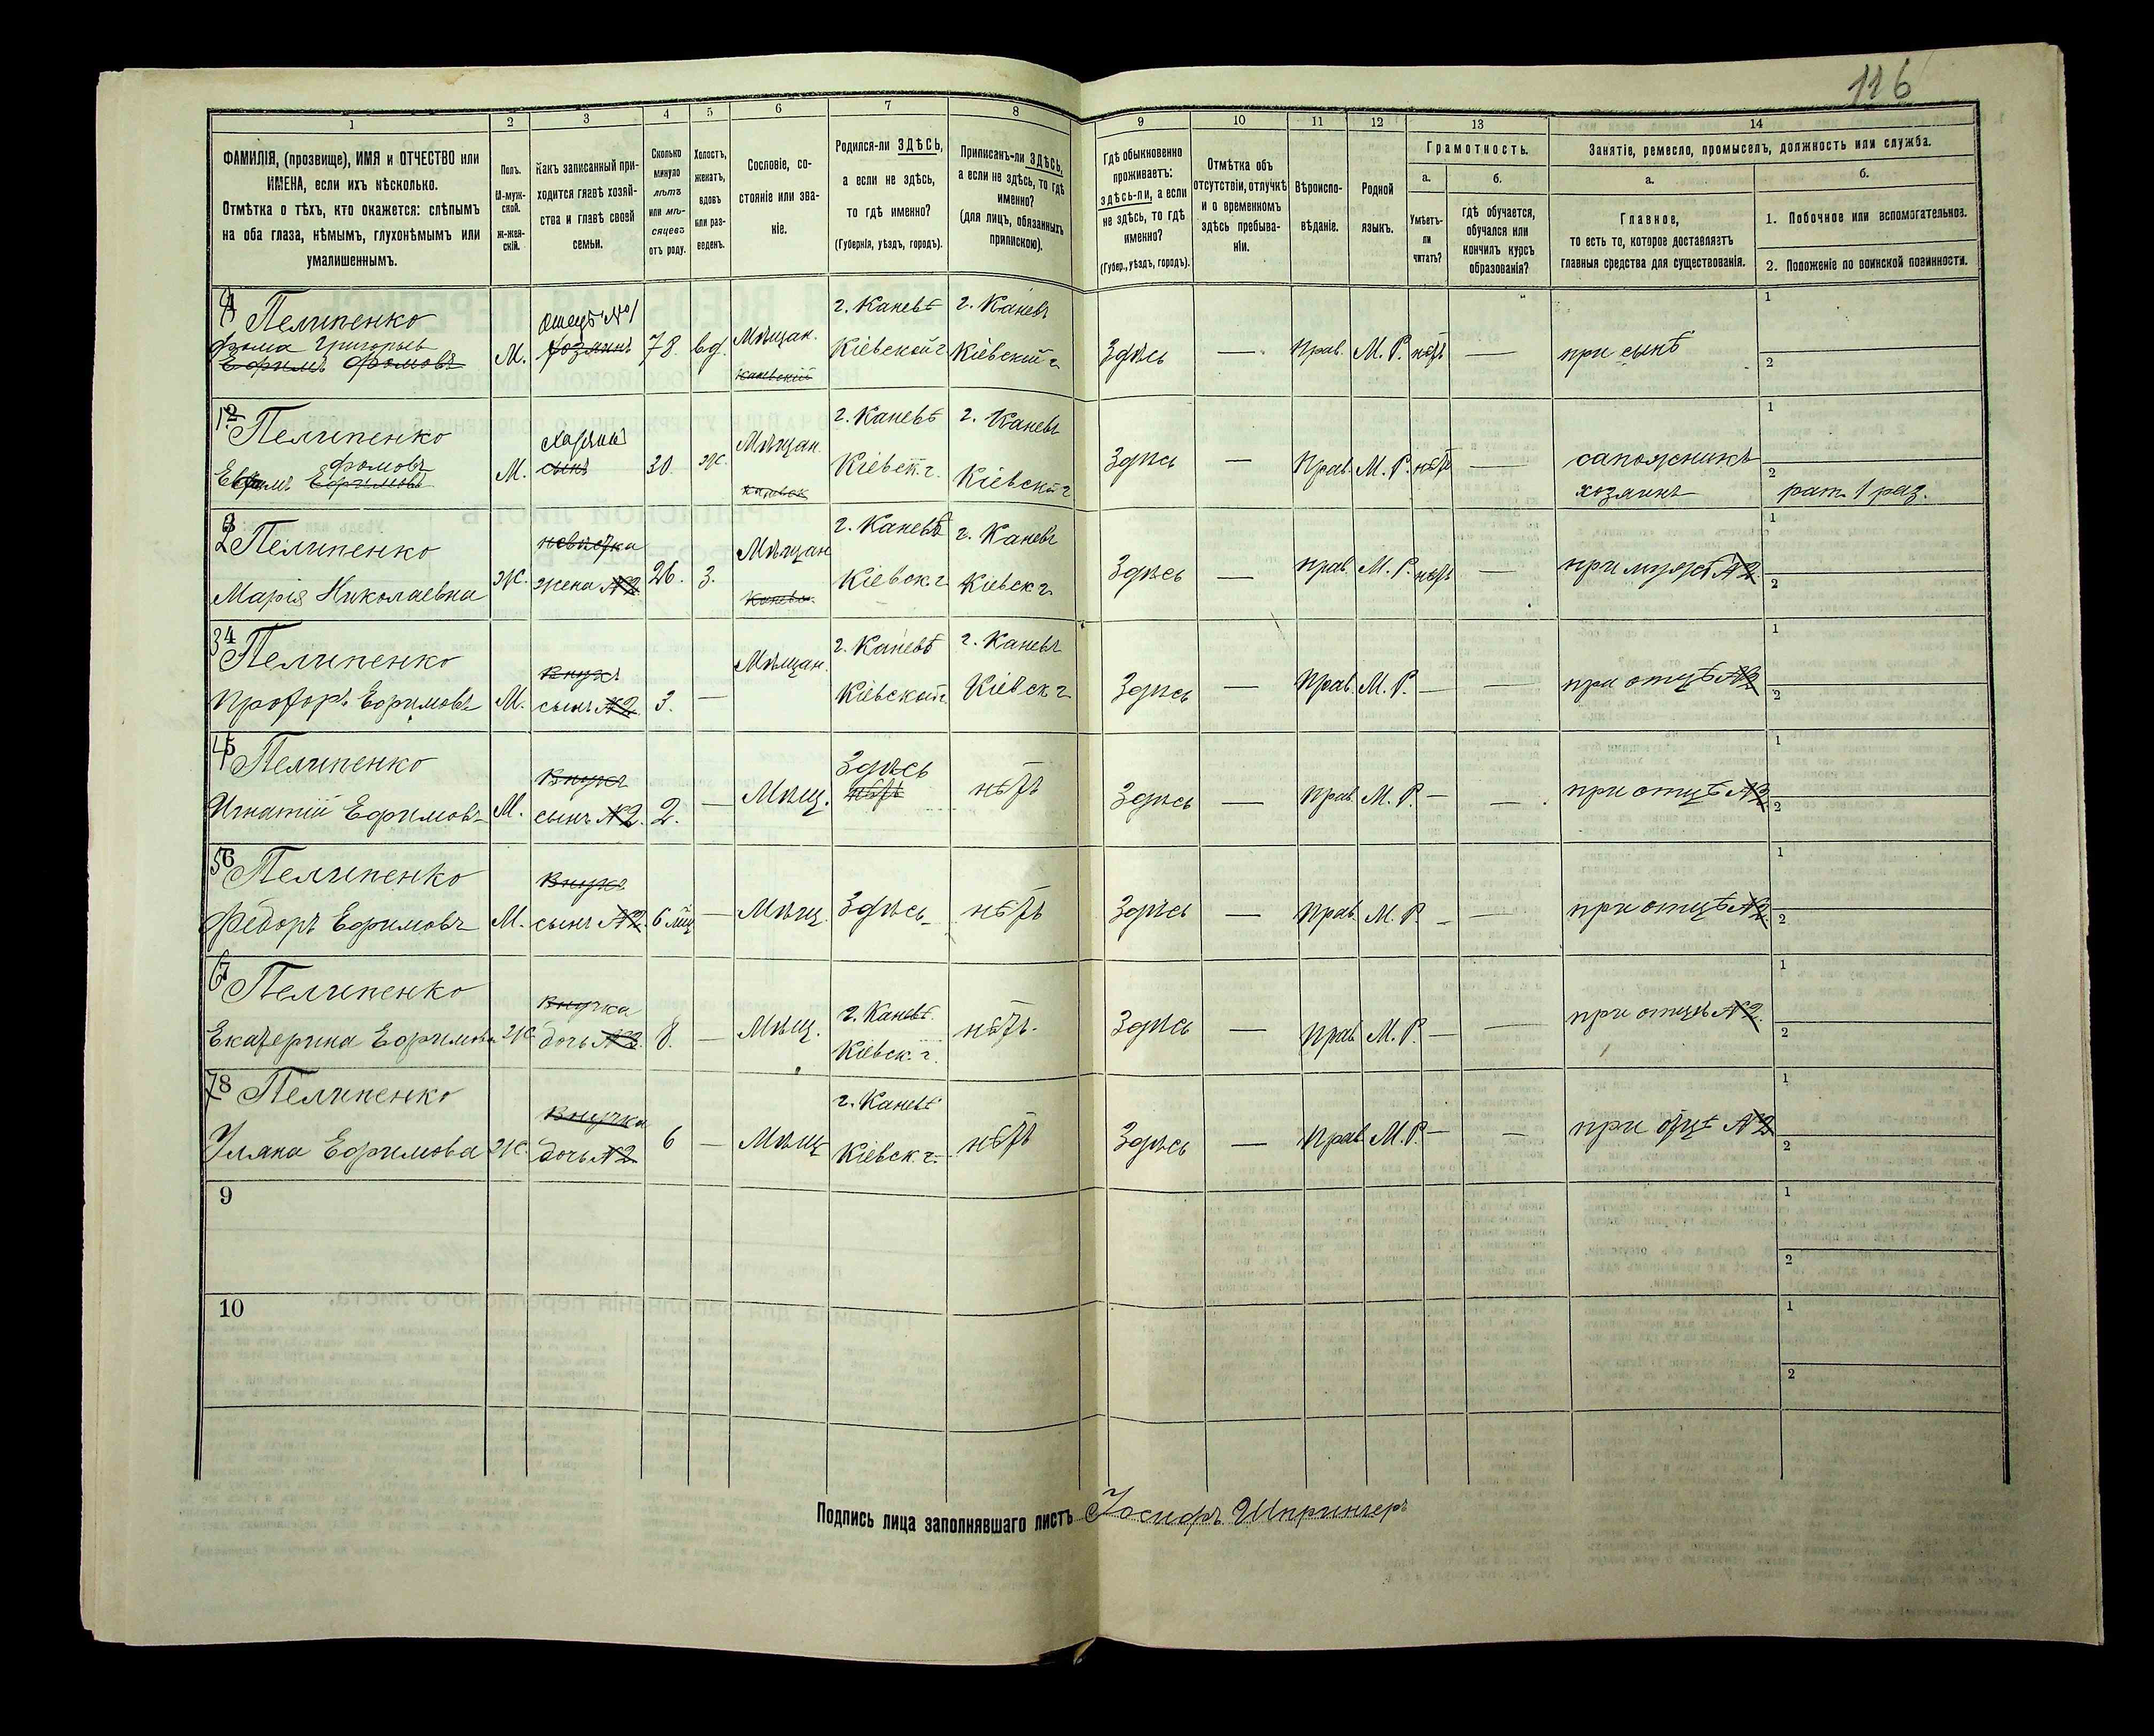 116
1
2
3
4
5
6
7
8
9
10
11
12
13
14
ФАМИЛІЯ, (прозвище), ИМЯ и ОТЧЕСТВО или
ИМЕНА, если ихъ нѣсколько.
Отмѣтка о тѣхъ, кто окажется: слѣпымъ
на оба глаза, нѣмымъ, глухонѣмымъ или
умалишеннымъ.
Полъ.
М-муж-
ской.
Ж-жен-
скій.
Какъ записанный при-
ходится главѣ хозяй-
ства и главѣ своей
семьи.
Сколько
минуло
лѣтъ
или мѣ-
сяцевъ
отъ роду.
Холостъ,
женатъ,
вдовъ
или раз-
веденъ.
Сословіе, со-
стояніе или зва-
ніе.
Родился-ли ЗДѢСЬ,
а если не здѣсь,
то гдѣ именно?
(Губернія, уѣздъ, городъ).
Приписанъ-ли ЗДѢСЬ,
а если не здѣсь, то гдѣ
именно?
(для лицъ, обязанныхъ
припискою).
Гдѣ обыкновенно
проживаетъ:
здѣсь-ли, а если
не здѣсь, то гдѣ
именно?
(Губер., уѣздъ, городъ).
Отмѣтка объ
отсутствіи, отлучкѣ
и о временномъ
здѣсь пребыва-
ніи.
Вѣроиспо-
вѣданіе.
Родной
языкъ.
Грамотность.
а.
Умѣетъ-
ли
читать?
б.
гдѣ обучается,
обучался или
кончилъ курсъ
образованія?
Занятіе, ремесло, промыселъ, должность или служба.
а.
Главное,
то есть то, которое доставляетъ
главныя средства для существованія.
б.
1. Побочное или вспомогательное.
2. Положеніе по воинской повинности.
Пелипенко
Фома Григорьев
Ефимъ Фомовъ
М.
Отецъ №1
хозяинъ
78.
вд.
Мѣщан.
Каневскій
г. Каневѣ
Кіевской г.
г. Каневъ
Кіевской г.
Здѣсь
—
Прав.
М. Р.
нѣтъ
—
при сынѣ
1
2
2 Пелипенко
Фомовъ
Ефимъ Ефимовъ
М.
хозяинъ
сынъ
30.
ж.
Мѣщан.
г. Каневѣ
Кіевск. г.
г. Каневъ
Кіевской г.
Здѣсь
—
Прав.
М. Р.
нѣтъ
—
сапожникъ
хозяинъ
1
2
рат. 1 раз.
2 Пелипенко
Марія Николаевна
ж.
невѣстка
жена №2
26.
з.
Мѣщан
г. Каневѣ
Кіевск. г.
г. Каневъ
Кіевск г.
Здѣсь
—
Прав.
М. Р.
нѣтъ
—
при мужѣ №2
1
2
34 Пелипенко
Прохоръ Ефимовъ
М.
внукъ
сынъ №2
3.
—
Мѣщан.
г. Каневѣ
Кіевской г.
г. Каневъ
Кіевск г.
Здѣсь
—
Прав.
М. Р.
—
—
при отцѣ №2
1
2
45 Пелипенко
Игнатій Ефимовъ
М.
внукъ
сынъ №2.
2.
—
Мѣщ.
Здѣсь
нѣтъ
нѣтъ
Здѣсь
—
Прав.
М. Р.
—
—
при отцѣ №2
1
2
56 Пелипенко
Федоръ Ефимовъ
М.
внукъ
сынъ №2.
6 мѣц
—
Мѣщ.
Здѣсь
нѣтъ
Здѣсь
—
Прав.
М. Р.
—
—
при отцѣ №2.
1
2
67 Пелипенко
Екатерина Ефимова
ж.
внучка
дочь №2.
8.
—
Мѣщ.
г. Каневѣ.
Кіевск. г.
нѣтъ.
Здѣсь
—
Прав
М. Р.
—
—
при отцѣ №2.
1
2
78 Пелипенко
Уляна Ефимова
ж.
внучка
дочь №2
6
—
Мѣщ
г. Каневѣ
Кіевск. г.
нѣтъ
Здѣсь
—
Прав
М. Р.
—
—
при отцѣ №2
1
2
9
1
2
10
1
2
Подпись лица заполнявшаго листъ Іосифъ Шпрингеръ